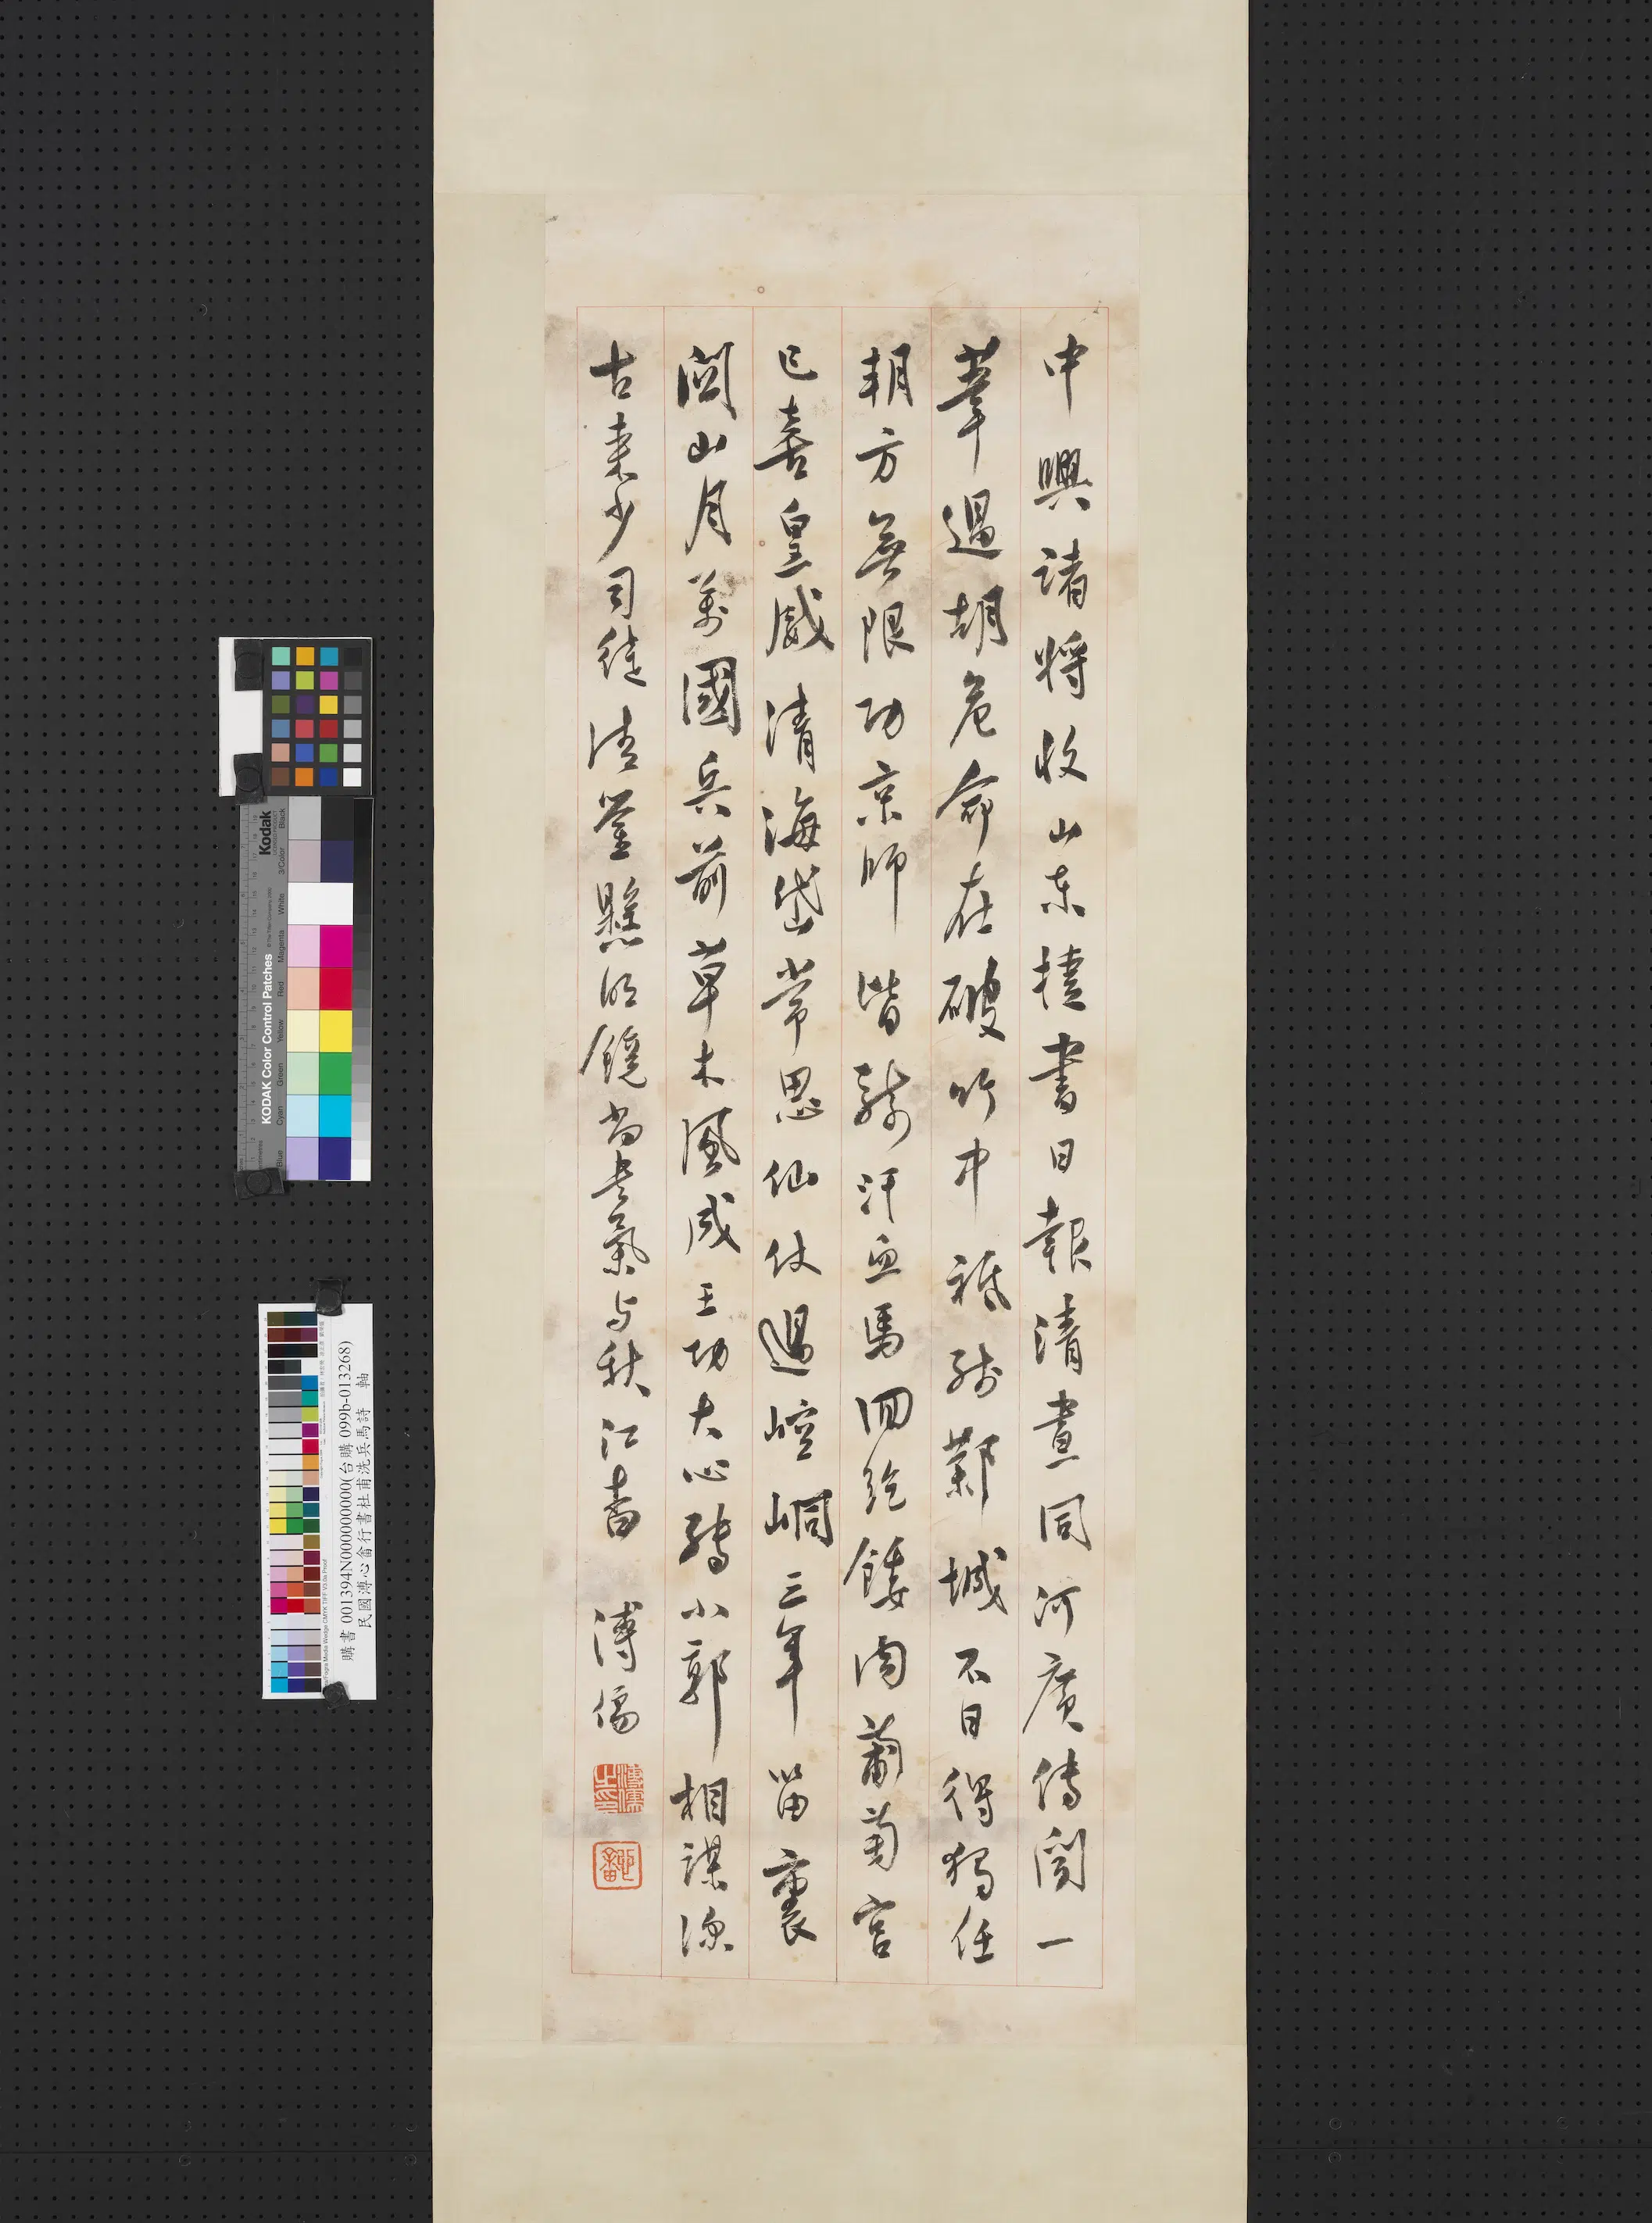 中興諸將收山東捷書日報清晝同河廣傳聞一
葦過胡危命在破竹中祗殘鄴城不日得獨任
朔方無限功京師皆騎汗血馬回紇餧肉葡萄宮
已喜皇威清海岱常思仙仗過崆峒三年笛裏
關山月萬國兵前草木風成王功大心轉小郭相謀深
古來少司徒清鑒懸明鏡尚書氣与秋江杳 溥儒
溥儒之印
Kodak
KODAK Color Control Patches
Blue Cyan Green Yellow Red Magenta White 3/Color Black
購書 001394N000000000(台購 099b-013268)
民國溥心畬行書杜甫洗兵馬詩 軸